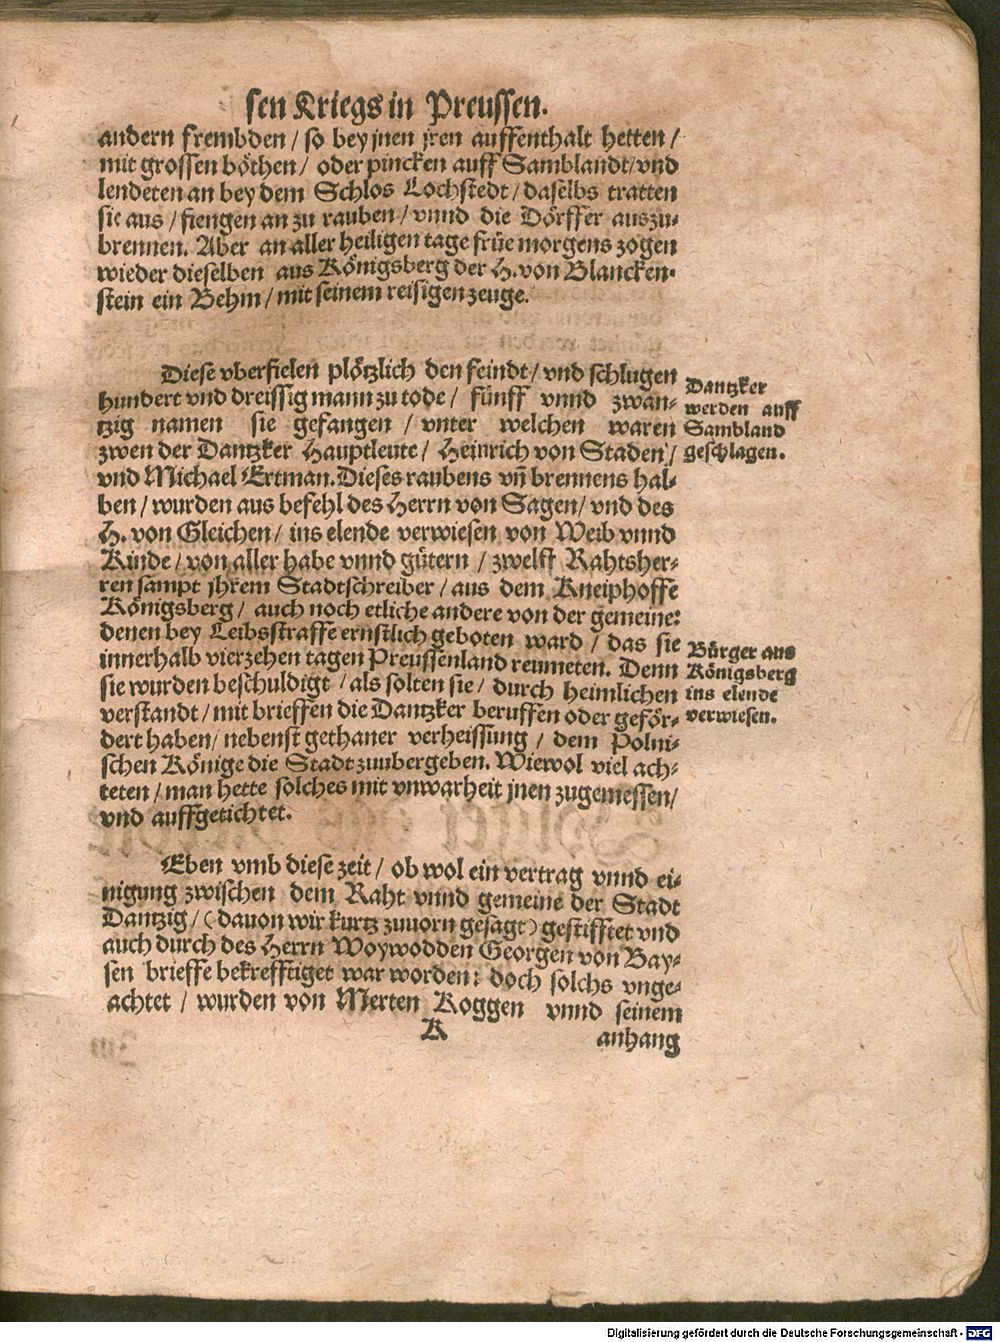 sen Kriegs in Preussen.
andern frembden / so bey jnen jren auffenthalt hetten /
mit grossen böthen / oder pincken auff Samblandt / vnd
lendeten an bey dem Schlos Lochstedt / daselbs tratten
sie aus / fiengen an zu rauben / vnnd die Dörffer auszu-
brennen. Aber an aller heiligen tage früe morgens zogen
wieder dieselben aus Königsberg der H. von Blancken-
stein ein Behm / mit seinem reisigen zeuge.
Diese vberfielen plötzlich den feindt / vnd schlugen
hundert vnd dreissig mann zu tode / fünff vnnd zwan-
tzig namen sie gefangen / vnter welchen waren
zwen der Dantzker Hauptleute / Heinrich von Staden /
vnd Michael Ertman. Dieses raubens vñ brennens hal-
ben / wurden aus befehl des Herrn von Sagen / vnd des
H. von Gleichen / ins elende verwiesen von Weib vnnd
Kinde / von aller habe vnnd gütern / zwelff Rahtsher-
ren sampt jhrem Stadtschreiber / aus dem Kneiphoffe
Königsberg / auch noch etliche andere von der gemeine:
denen bey Leibsstraffe ernstlich geboten ward / das sie
innerhalb vierzehen tagen Preussenland reumeten. Denn
sie wurden beschuldigt / als solten sie / durch heimlichen
verstandt / mit brieffen die Dantzker beruffen oder geför-
dert haben / nebenst gethaner verheissung / dem Polni-
schen Könige die Stadt zuubergeben. Wiewol viel ach-
teten / man hette solches mit vnwarheit jnen zugemessen /
vnd auffgetichtet.
Dantzker
werden auff
Sambland
geschlagen.
Bürger aus
Königsberg
ins elende
verwiesen.
Eben vmb diese zeit / ob wol ein vertrag vnnd ei-
nigung zwischen dem Raht vnnd gemeine der Stadt
Dantzig / (dauon wir kurtz zuuorn gesagt) gestifftet vnd
auch durch des Herrn Woywodden Georgen von Bay-
sen brieffe bekrefftiget war worden: doch solchs vnge-
achtet / wurden von Merten Koggen vnnd seinem
K anhang
Digitalisierung gefördert durch die Deutsche Forschungsgemeinschaft - DFG